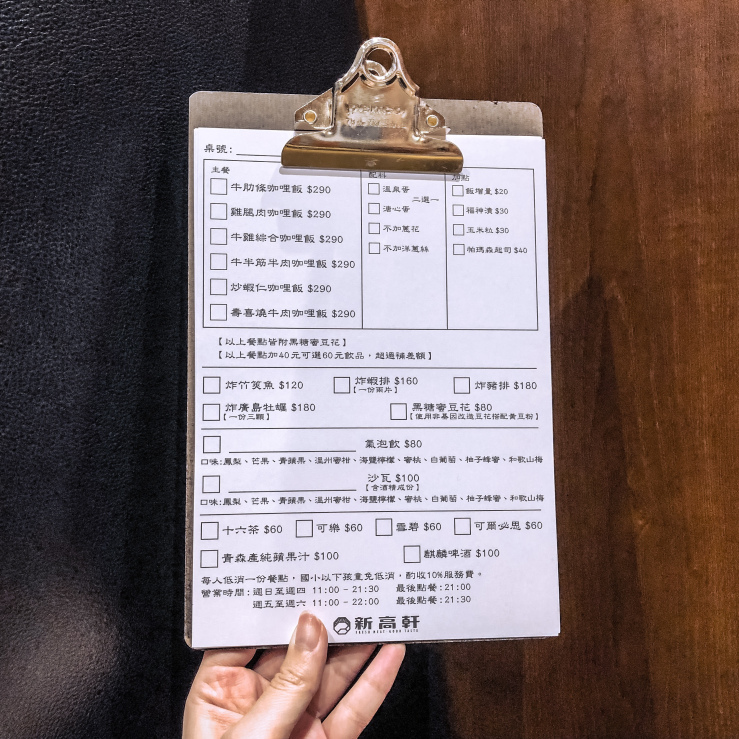 桌號：
主餐
牛肋條咖哩飯 $290
雞腿肉咖哩飯 $290
牛雞綜合咖哩飯 $290
牛半筋半肉咖哩飯 $290
炒蝦仁咖哩飯 $290
壽喜燒牛肉咖哩飯 $290
配料
溫泉蛋
二選一
溏心蛋
不加蔥花
不加洋蔥絲
加點
飯增量 $20
福神漬 $30
玉米粒 $30
帕瑪森起司 $40
【以上餐點皆附黑糖蜜豆花】
【以上餐點加40元可選60元飲品，超過補差額】
炸竹筴魚 $120
炸蝦排 $160
【一份兩片】
炸豬排 $180
炸廣島牡蠣 $180
【一份三顆】
黑糖蜜豆花 $80
【使用非基因改造豆花搭配黃豆粉】
氣泡飲 $80
口味：鳳梨、芒果、青蘋果、溫州蜜柑、海鹽檸檬、蜜桃、白葡萄、柚子蜂蜜、和歌山梅
沙瓦 $100
【含酒精成份】
口味：鳳梨、芒果、青蘋果、溫州蜜柑、海鹽檸檬、蜜桃、白葡萄、柚子蜂蜜、和歌山梅
十六茶 $60
可樂 $60
雪碧 $60
可爾必思 $60
青森產純蘋果汁 $100
麒麟啤酒 $100
每人低消一份餐點，國小以下孩童免低消，酌收10%服務費。
營業時間：週日至週四 11:00 - 21:30 最後點餐：21:00
週五至週六 11:00 - 22:00 最後點餐：21:30
新高軒
FRESH MEAT·GOOD TASTE